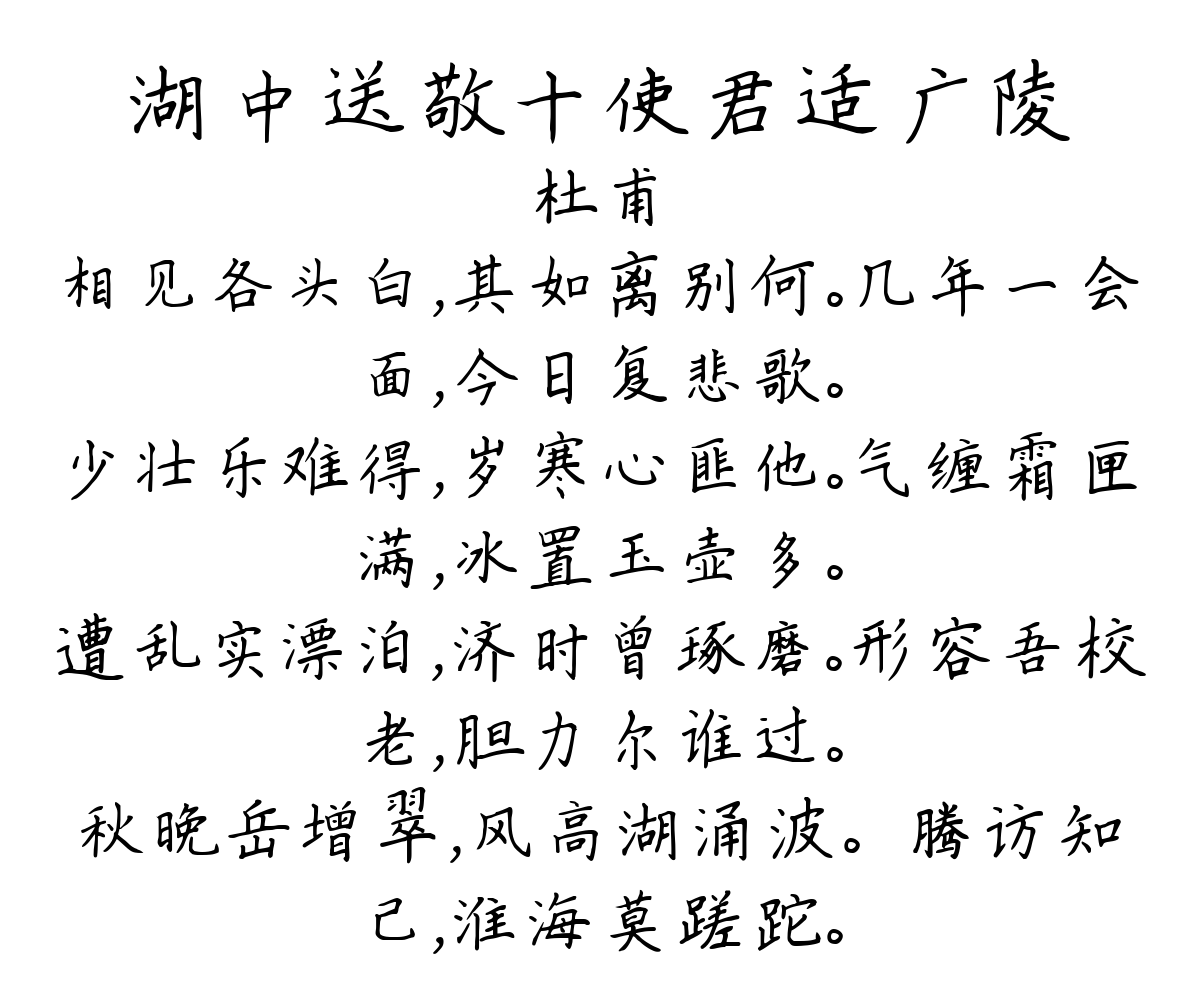 湖中送敬十使君适广陵
杜甫
相见各头白,其如离别何。几年一会
面,今日复悲歌。
少壮乐难得,岁寒心匪他。气缠霜匣
满,冰置玉壶多。
遭乱实漂泊,济时曾琢磨。形容吾校
老,胆力尔谁过。
秋晚岳增翠,风高湖涌波。腾访知
己,淮海莫蹉跎。